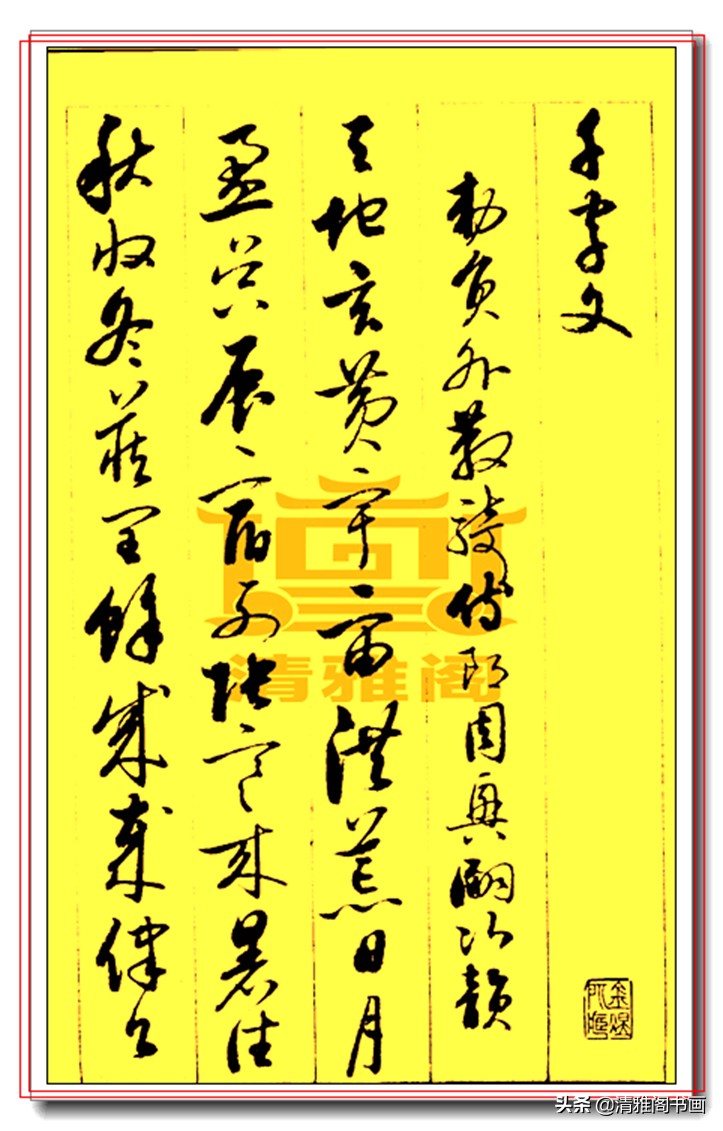 千字文
勅員外散騎侍郎周興嗣次韻
天地玄黃宇宙洪荒日月
盈昃辰宿列張寒來暑往
秋收冬藏閏餘成歲律
清雅阁
头条 @清雅阁书画